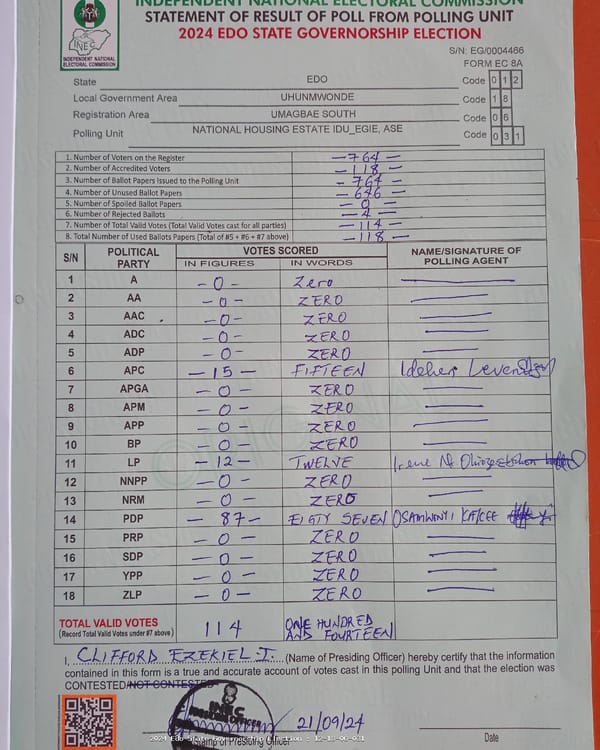 INDEPENDENT NATIONAL ELECTORAL COMMISSION
STATEMENT OF RESULT OF POLL FROM POLLING UNIT
2024 EDO STATE GOVERNORSHIP ELECTION
INEC
INDEPENDENT NATIONAL
ELECTORAL COMMISSION
S/N: EG/0004466
FORM EC 8A
State EDO Code 0 1 2
Local Government Area UHUNMWONDE Code 1 8
Registration Area UMAGBAE SOUTH Code 0 6
Polling Unit NATIONAL HOUSING ESTATE IDU_EGIE, ASE Code 0 3 1
1. Number of Voters on the Register -764-
2. Number of Accredited Voters -118-
3. Number of Ballot Papers Issued to the Polling Unit -764-
4. Number of Unused Ballot Papers -646-
5. Number of Spoiled Ballot Papers -0-
6. Number of Rejected Ballots -4-
7. Number of Total Valid Votes (Total Valid Votes cast for all parties) -114-
8. Total Number of Used Ballots Papers (Total of #5 + #6 + #7 above) -118-
S/N POLITICAL PARTY VOTES SCORED NAME/SIGNATURE OF POLLING AGENT
IN FIGURES IN WORDS
1 A -0- Zero
2 AA -0- ZERO
3 AAC -0- ZERO
4 ADC -0- ZERO
5 ADP -0- ZERO
6 APC -15- FIFTEEN Idehen
7 APGA -0- ZERO
8 APM -0- ZERO
9 APP -0- ZERO
10 BP -0- ZERO
11 LP -12- TWELVE Irene
12 NNPP -0- ZERO
13 NRM -0- ZERO
14 PDP -87- EIGTY SEVEN
15 PRP -0- ZERO
16 SDP -0- ZERO
17 YPP -0- ZERO
18 ZLP -0- ZERO
TOTAL VALID VOTES 114 ONE HUNDRED
(Record Total Valid Votes under #7 above) AND FOURTEEN
I, CLIFFORD EZEKIEL J. (Name of Presiding Officer) hereby certify that the information
contained in this form is a true and accurate account of votes cast in this polling Unit and that the election was
CONTESTED/NOT CONTESTED
21/09/24
Stamp of Presiding Officer Date